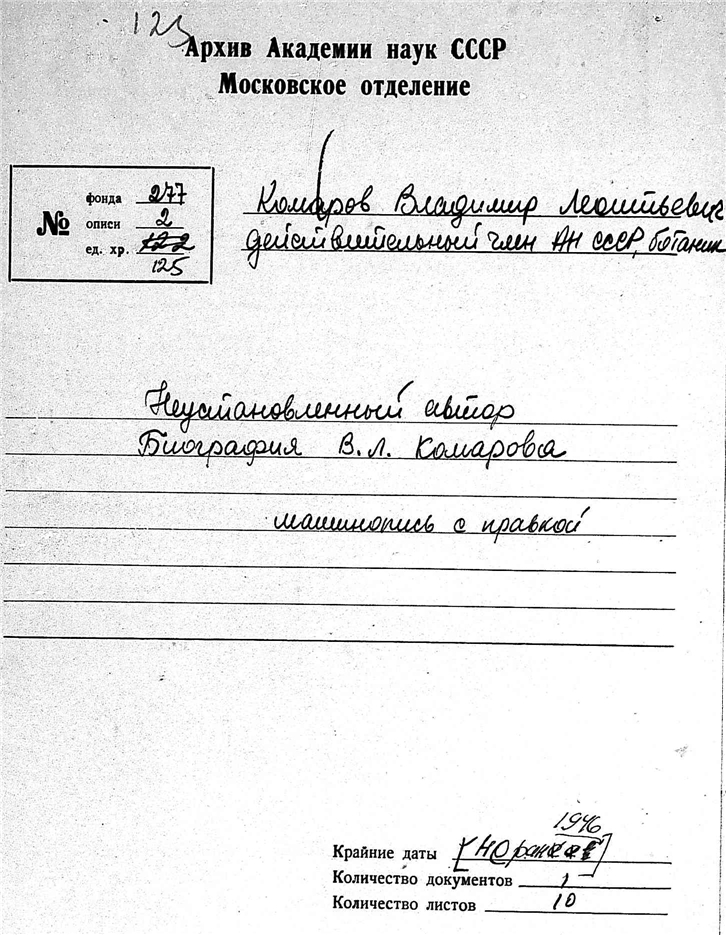 123
Архив Академии наук СССР
Московское отделение
№
фонда 277
описи 2
ед. хр. 122
125
Комаров Владимир Леонтьевич
действительный член АН СССР, ботаник
Неустановленный автор
Биография В.Л. Комарова
машинопись с правкой
1946
Крайние даты
Количество документов 1
Количество листов 10